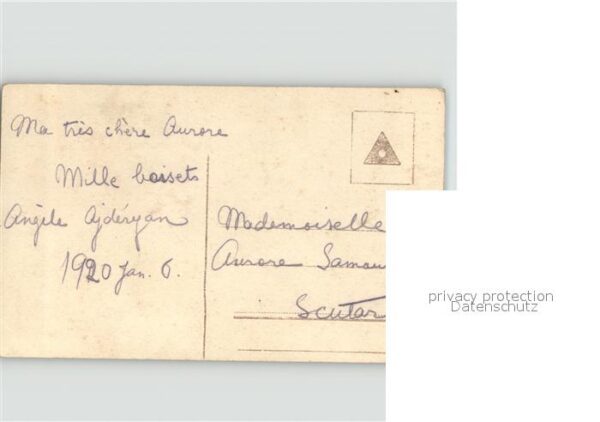 Ma très chère Aurore
Mille baisers
Angèle Ajdéryan
1920 Jan. 6.
Mademoiselle
Aurore
privacy protection
Datenschutz